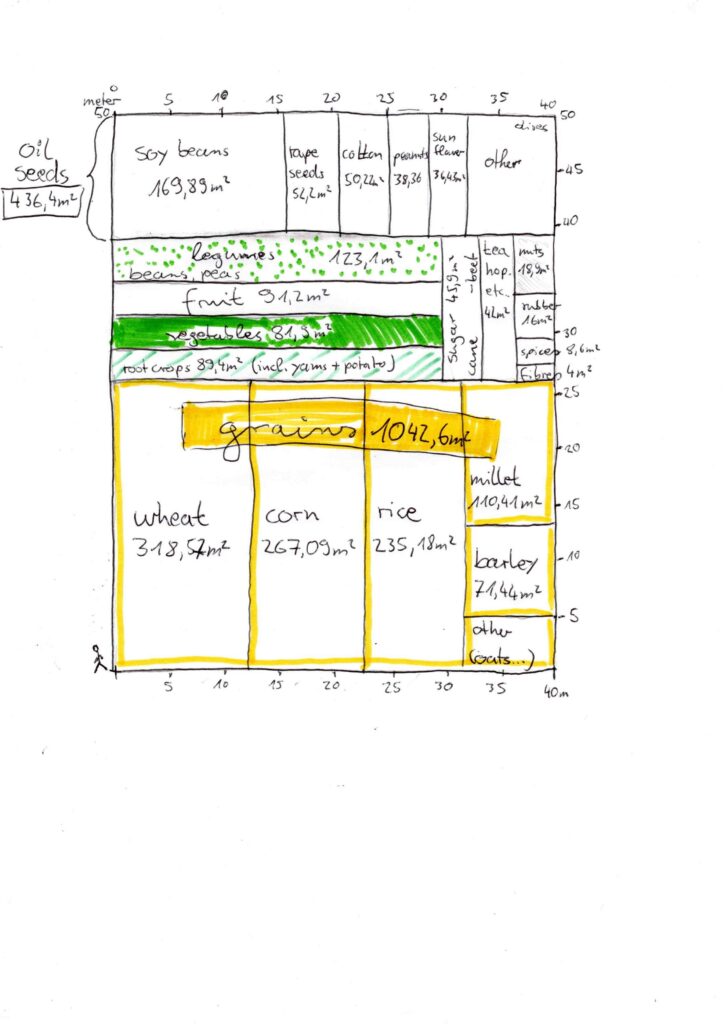 meter 0 5 10 15 20 25 30 35 40
50
50
Oil
seeds
436,4m²
soy beans
169,89m²
rape
seeds
52,2m²
cotton
50,22m²
peanuts
38,36
sun
flower
36,43m²
olives
other
45
40
legumes 123,1m²
beans, peas
fruit 91,2m²
vegetables 81,9m²
root crops 89,4m² (incl. yams + potato)
sugar 45,9m²
-beet
cane
tea
hop.
etc.
42m²
nuts
18,9m²
rubber
16m²
30
spices 8,6m²
Fibres 4m²
25
grains 1042,6m²
20
wheat
318,57m²
corn
267,09m²
rice
235,18m²
millet
110,41m²
15
barley
71,44m²
10
5
other
(oats...)
5 10 15 20 25 30 35 40m